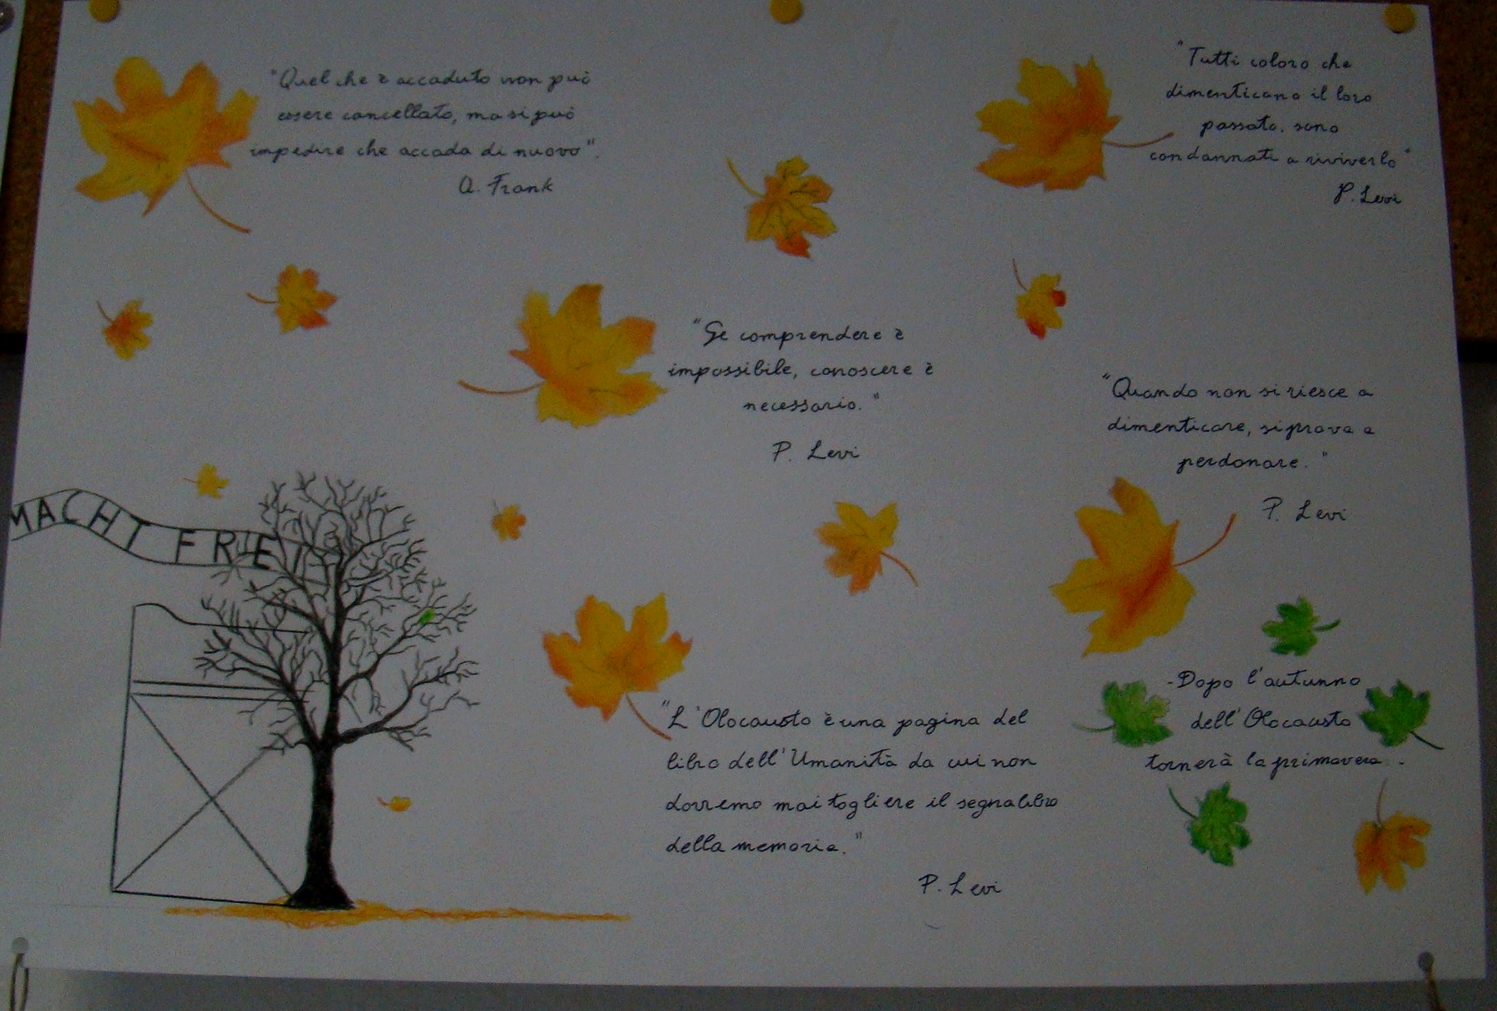 "Quel che è accaduto non può
essere cancellato, ma si può
impedire che accada di nuovo".
A. Frank
"Tutti coloro che
dimenticano il loro
passato, sono
condannati a riviverlo"
P. Levi
"Se comprendere è
impossibile, conoscere è
necessario."
P. Levi
"Quando non si riesce a
dimenticare, si prova a
perdonare."
P. Levi
MACHT FREI
"L'Olocausto è una pagina del
libro dell'Umanità da cui non
dovremo mai togliere il segnalibro
della memoria."
P. Levi
-Dopo l'autunno
dell'Olocausto
tornerà la primavera.-